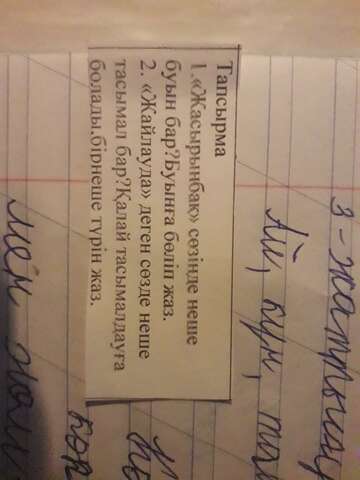 Тапсырма
1.«Жасырынбақ» сөзінде неше
буын бар?Буынға бөліп жаз.
2. «Жайлауда» деген сөзде неше
тасымал бар?Қалай тасымалдауға
болады.бірнеше түрін жаз.
3 - жаттығу
Ай, күн,
мен